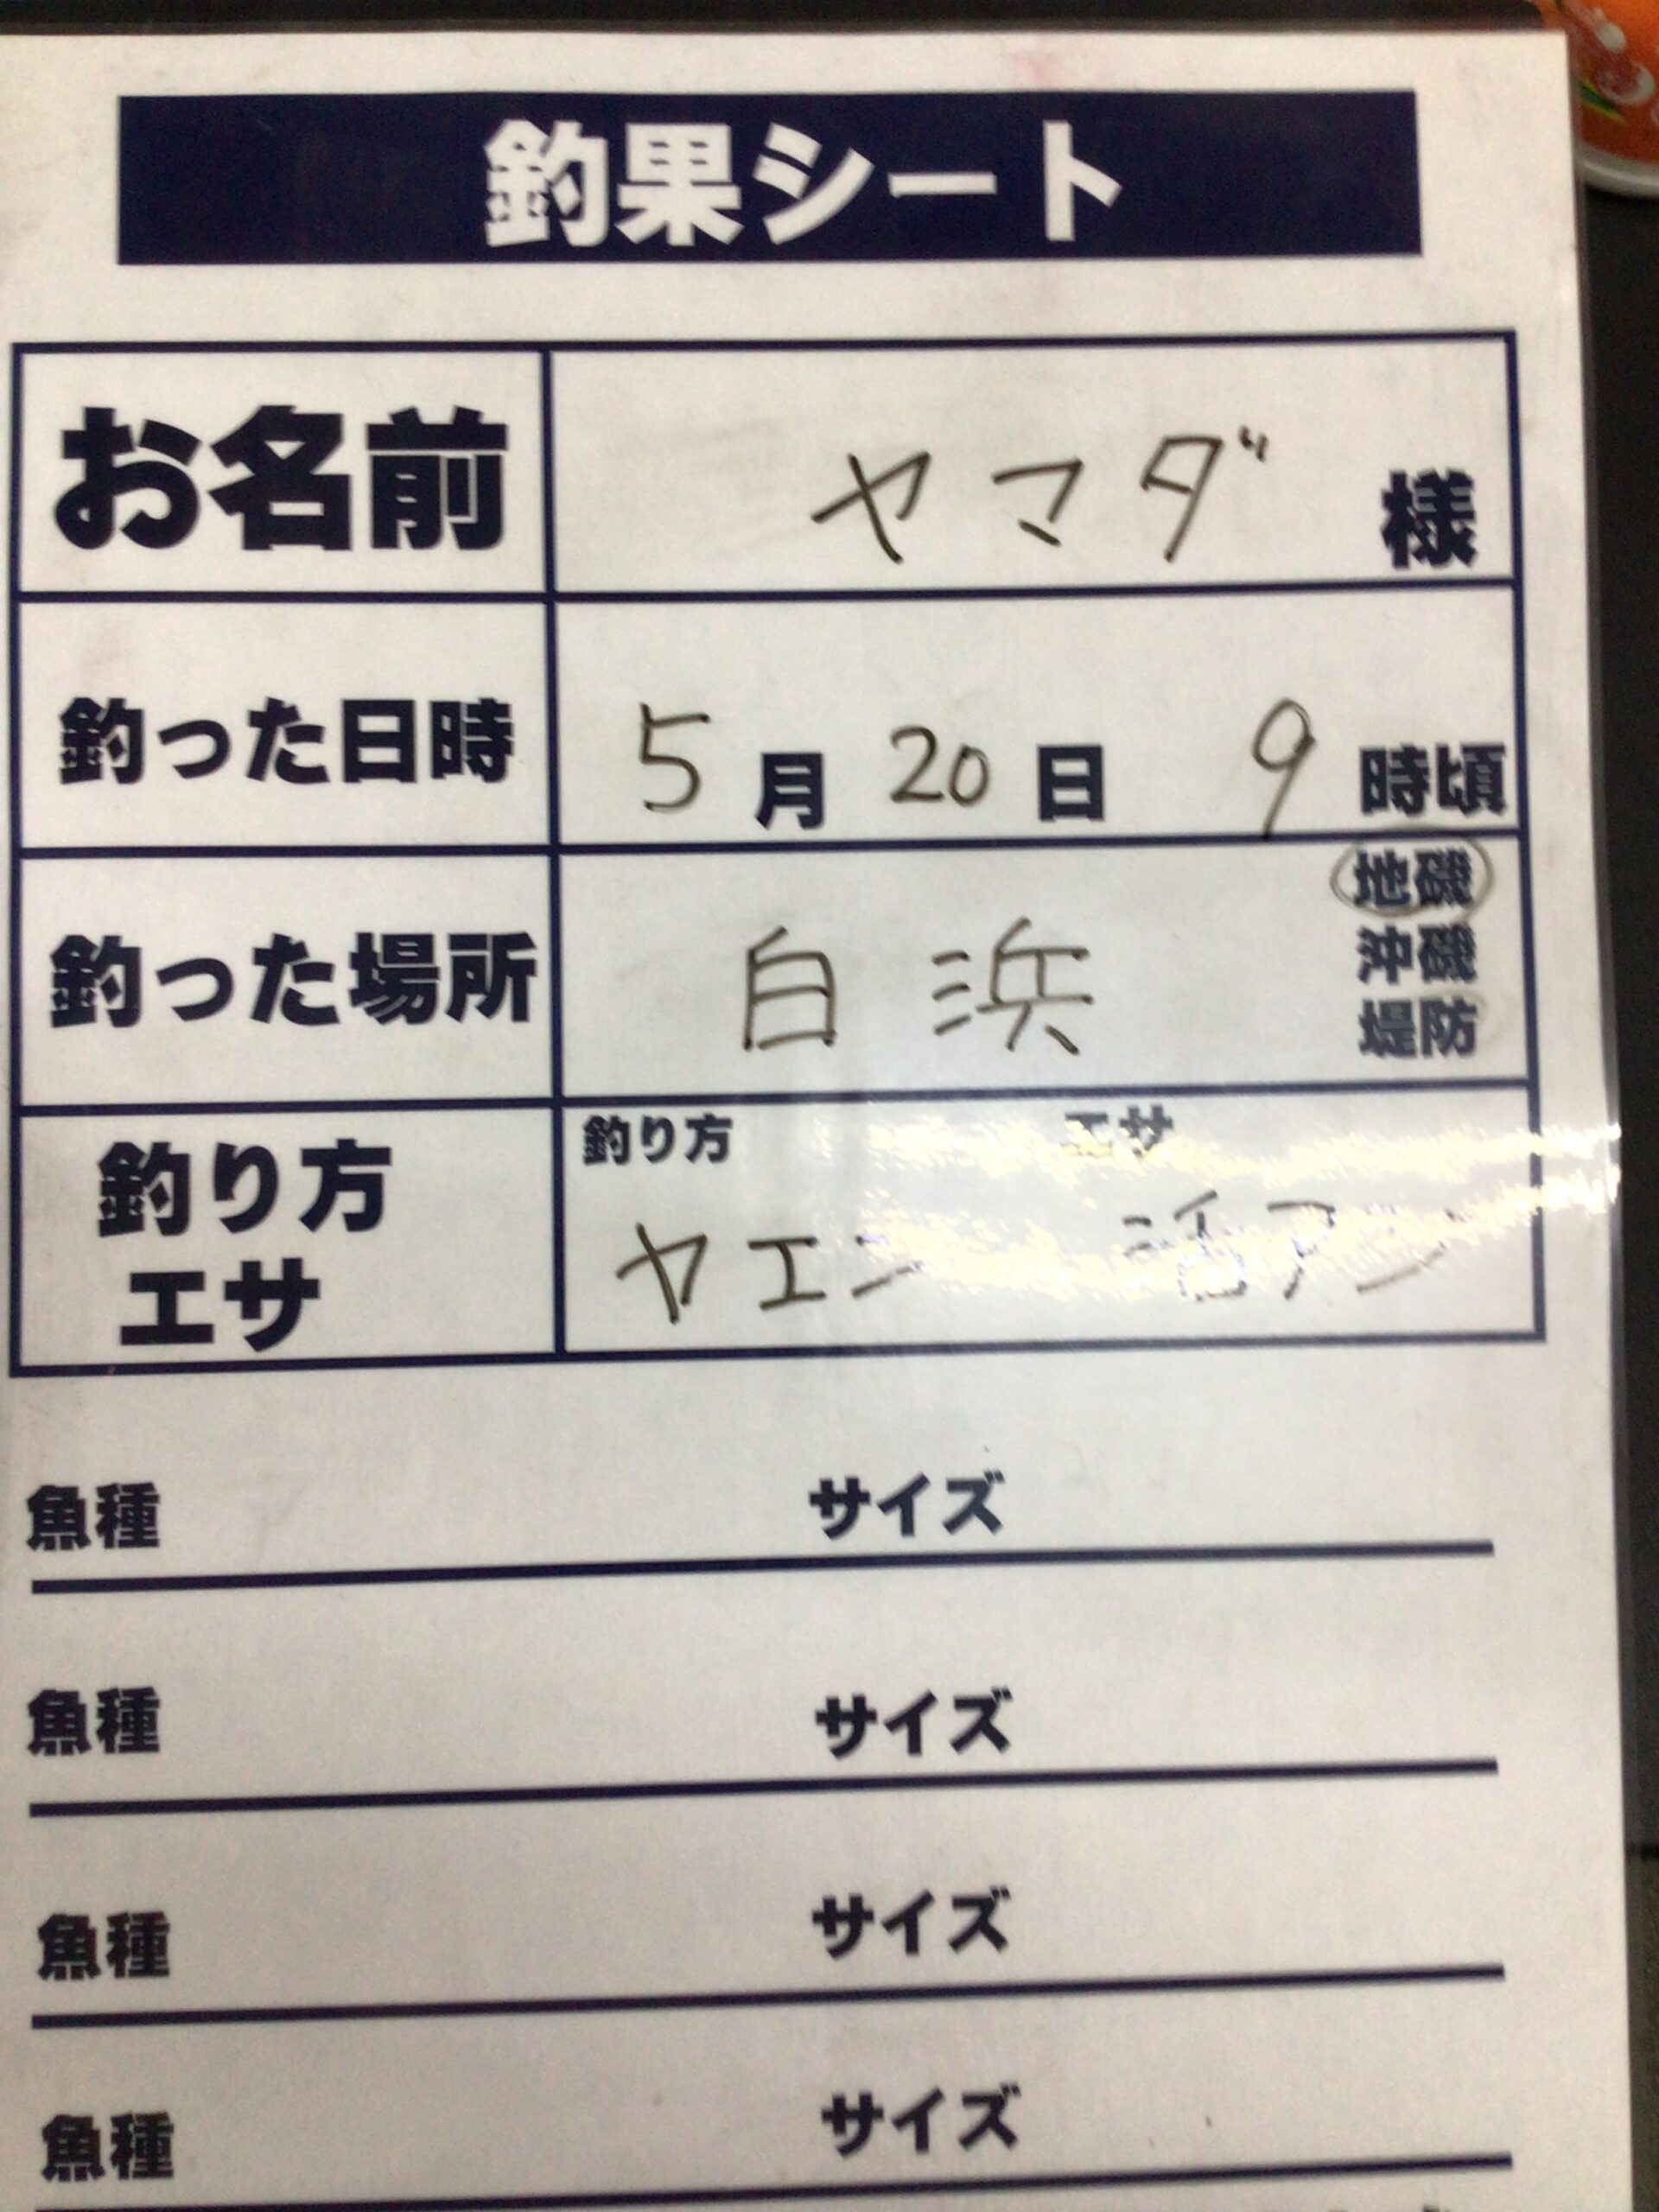 釣果シート
お名前 ヤマダ 様
釣った日時 5月20日 9時頃
釣った場所 白浜 地磯
沖磯
堤防
釣り方 エサ
釣り方 ヤエン 活アジ
エサ
魚種 サイズ
魚種 サイズ
魚種 サイズ
魚種 サイズ